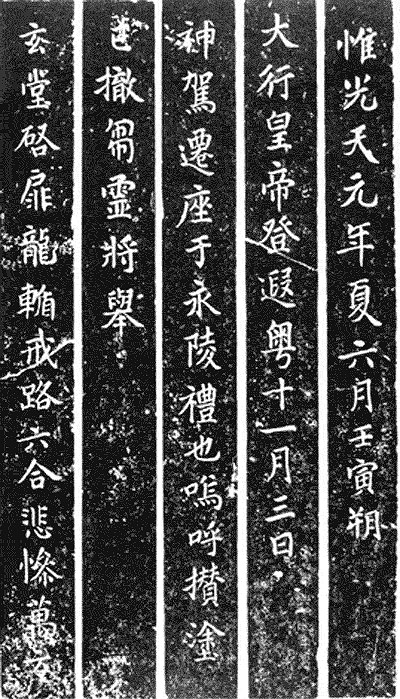 惟光天元年夏六月壬寅朔
大行皇帝登遐粤十一月三日
神駕遷座于永陵禮也嗚呼攅塗
撤芻靈將舉
玄堂啓扉龍輴戒路六合悲慘萬